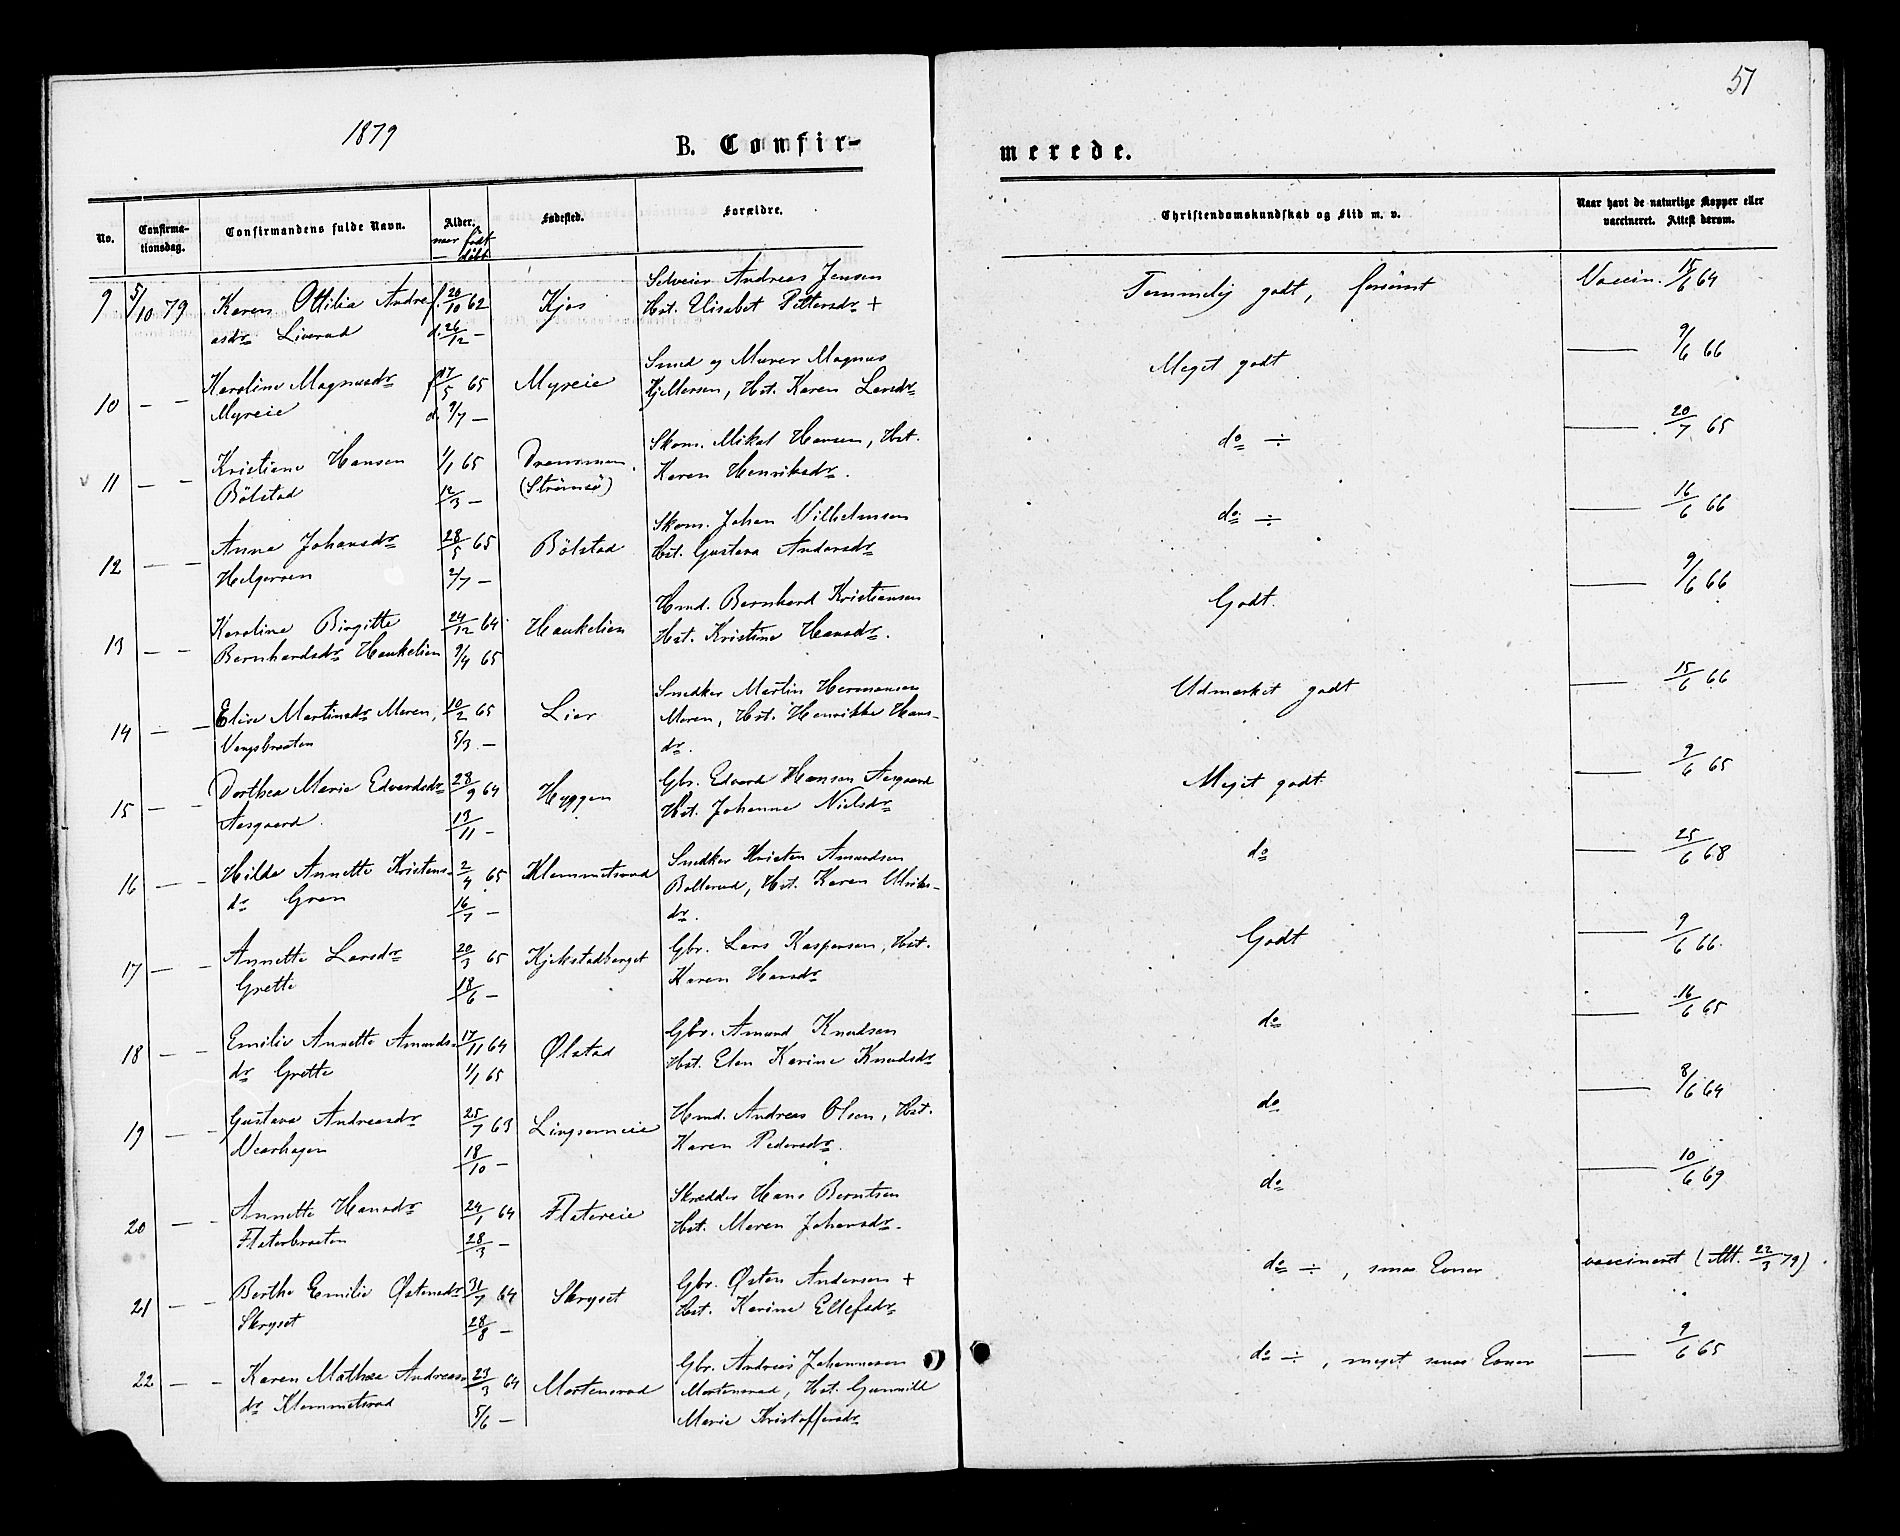 51
1879
B. Confir-
merede.
No.
Confirma-
tionsdag.
Confirmandens fulde Navn.
Alder.
naar født
— døbt
Fødested.
Forældre.
Christendomskundskab og Flid m. v.
Naar havt de naturlige Kopper eller
vaccineret. Attest derom.
9 5/10 79 Karen Ottilia Andre- f. 20/10 62 Kjos Selveier Andreas Jensen Temmelig godt, forsømt Vaccin. 15/6 64
asdr Liverud d. 26/12 — Hst. Elisabet Pettersdr +
10 — — Karoline Magnusdr f. 17/5 65 Myreie Smed og Murer Magnus Meget godt — 9/6 66
Myreie d. 9/7 — Kjeldersen, Hst. Karen Larsdr
11 — — Kristiane Hansen 1/1 65 Drammen Skom. Mikal Hansen, Hst. do ÷ — 20/7 65
Bölstad 12/3 — (Strömsö) Karen Henriksdr.
12 — — Anne Johansdr 28/5 65 Bölstad Skom. Johan Vilhelmsen do ÷ — 16/6 66
Helgersen 2/7 — Hst. Gustava Andersdr
13 — — Karoline Birgitte 24/12 64 Haukelien Hmd. Bernhard Kristiansen Godt. — 9/6 66
Bernhardsdr Haukelien 9/4 65 Hst. Kristine Hansdr.
14 — — Elise Martinsdr Moren, 10/2 65 Lier Snedker Martin Hermansen Udmærket godt — 15/6 66
Vengsbraaten 5/3 — Moren, Hst. Henrikke Hans-
dr.
15 — — Dorthea Marie Edvardsdr 28/9 64 Hyggen Gbr. Edvard Hansen Aasgaard Meget godt — 9/6 65
Aasgaard. 13/11 — Hst. Johanne Nielsdr
16 — — Hilda Annette Kristens- 2/4 65 Klemmetsrud Snedker Kristen Amundsen do — 25/6 68
dr Gran 16/7 — Bollerud, Hst. Karen Ulriks-
dr.
17 — — Annette Larsdr 20/3 65 Kjekstadberget Gbr. Lars Kaspersen, Hst. Godt — 9/6 66.
Grette 18/6 — Karen Hansdr
18 — — Emilie Annette Amunds- 17/11 64 Ølstad Gbr. Amund Knudsen do — 16/6 65
dr Grette 1/1 65 Hst. Elen Karine Knudsdr
19 — — Gustava Andreasdr 25/7 63 Lingsomeie Hmd. Andreas Olsen, Hst. do — 8/6 64
Næshagen 18/10 — Karen Pedersdr.
20 — — Annette Hansdr 24/1 64 Flatereie Skrædder Hans Berntsen do — 10/6 69
Flaterbraaten 28/3 — Hst. Maren Johansdr.
21 — — Berthe Emilie Østensdr 31/7 64 Skryset Gbr. Østen Andersen + do ÷, smaa Evner vaccineret (Att. 22/3 79).
Skryset 28/8 — Hst. Karine Ellefsdr
22 — — Karen Mathea Andreas- 23/3 64 Mortensrud Gbr. Andreas Johannesen do ÷, meget smaa Evner — 9/6 65
dr Klemmetsrud 5/6 — Mortensrud, Hst. Gunnild
Marie Kristoffersdr